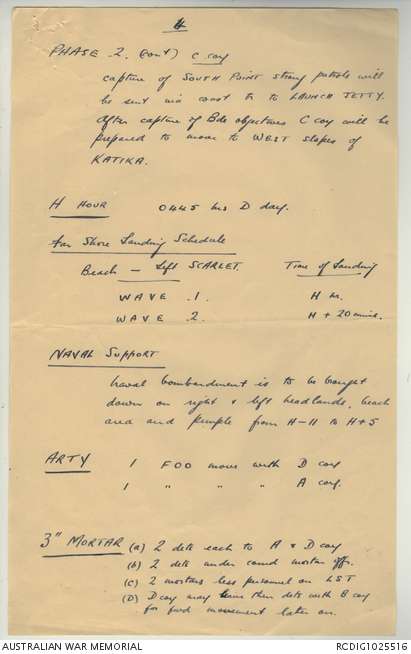 4
PHASE .2. (cont) C coy
capture of SOUTH POINT strong patrols will
be sent via coast to LAUNCH JETTY.
After capture of Bde objectives C coy will be
prepared to move to WEST slopes of
KATIKA.
H HOUR 0445 hrs D day.
Far Shore Landing Schedule
Beach - Left SCARLET Time of Landing
WAVE .1. H hr.
WAVE 2. H + 20 mins.
NAVAL SUPPORT
Naval bombardment is to be brought
down on right & left headlands, beach
area and pimple from H-11 to H+5
ARTY 1 FOO moves with D coy
1 " " " A coy.
3" MORTAR (a) 2 dets each to A & D coy
(b) 2 dets under comd mortar offr.
(c) 2 mortars less personnel on LST
(D) D coy may leave their dets with B coy
for fwd movement later on.
AUSTRALIAN WAR MEMORIAL RCDIG1025516